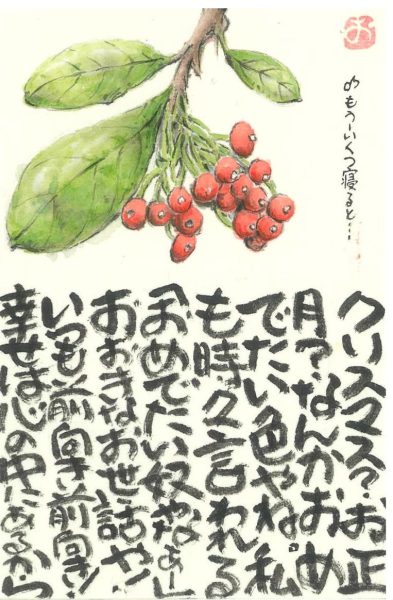 ♪もうーいくつ寝ると…
クリスマス?お正
月?なんかおめ
でたい色やね。私
も時々言われる
「おめでたい奴やなぁー」
おおきなお世話や!
いつも前向き前向き!
幸せは心の中にあるから